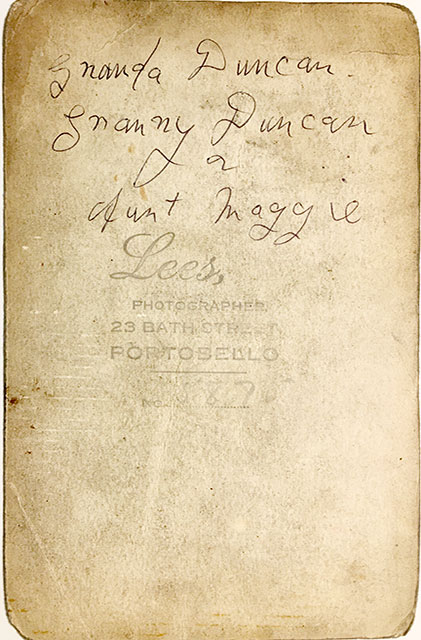 Granda Duncan.
Granny Duncan
&
Aunt Maggie
Lees,
PHOTOGRAPHER,
23 BATH STREET,
PORTOBELLO
No.